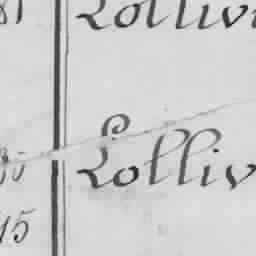 81 Lolliv
Lolliv
15